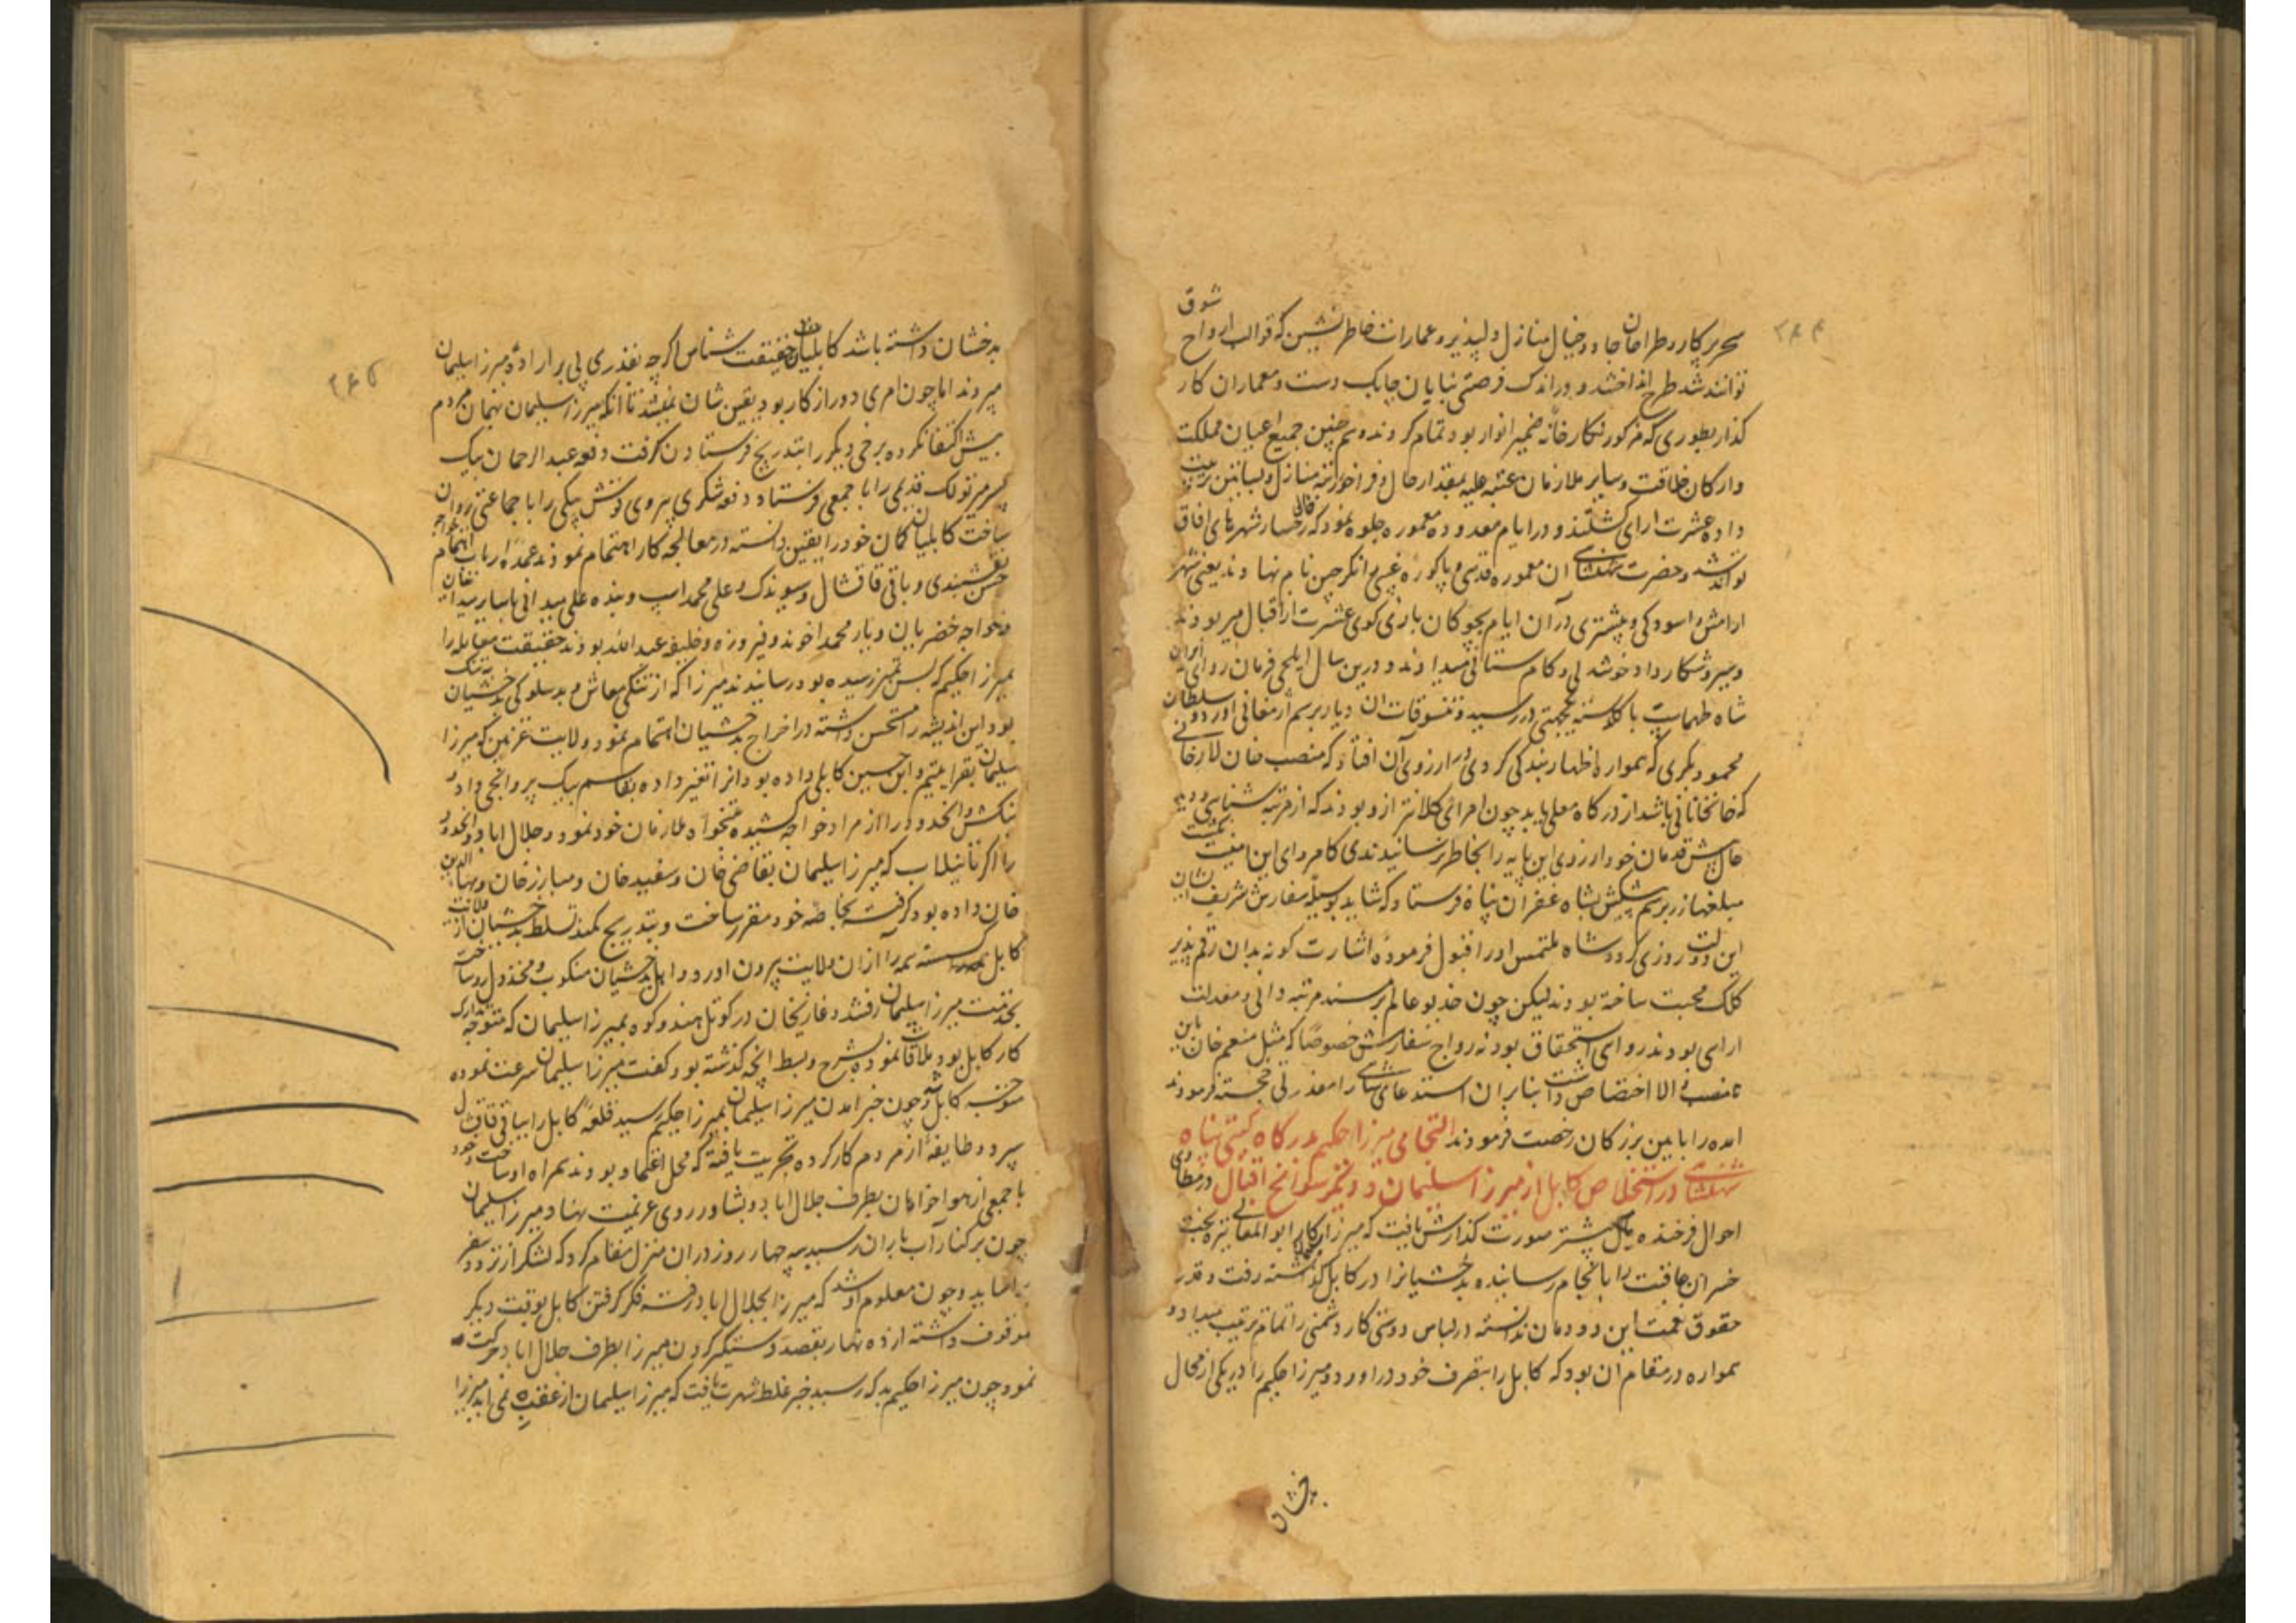 ۲۶۴
شوق
تحریر پکار و طراحان جادو خیال منازل دلپذیر و عمارات خاطر نشین که قوالب ارواح
توانند شد طرح انداختند و در اندک فرصتی بنایان چابک دست و معماران کار
گذار بطوری که مذکور نگارخانه ضمیر انوار بود تمام کردند و همچنین جمیع اعیان مملکت
و ارکان خلافت و سایر ملازمان عتبه علیه بمقدار حال و فراخور رتبه منازل و بساتین ترتیب
داده عشرت ارای کشتند و در ایام معدوده معموره جلوه نمود که خال رخسار شهرهای افاق
تواند شد و حضرت شهنشاهی ان معموره قدسی و پاکوره غیبی را نکرچین نام نهادند یعنی شهر
ارامش و اسودکی و پیشتری در آن ایام بچوکان بازی کوی عشرت از اقبال میربودند
و بسیر و شکار داد خوشدلی و کام ستانی میدادند و درین سال ایلچی فرمان روای ایران
شاه طهماسب با کلدسته یکجهتی در رسید و تنسوقات ان دیار برسم ارمغانی اورد و سلطان
محمود بکری که همواره اظهار بندکی کردی در ارزوی آن افتاد که منصب خان
که خانخانانی باشد از درکاه معلی یابد چون امرائی کلانتر ازو بودند که از مرتبه شناسی و دید
حال پیش قدمان خود ارزوی این پایه را بخاطر نرسانیدندی کامروای این امنیت
مبلغها زر برسم پیشکش بشاه غفران پناه فرستاد که شاید بوسیله سفارش شریف ایشان
این دولت روزی کردد شاه ملتمس او را قبول فرموده اشارت کونه بدان رقم پذیر
کلک محبت ساخته بودند لیکن چون خدیو عالم بر مسند مرتبه دانی و معدلت
ارای بودند روائی استحقاق بود نه رواج سفارش خصوصا که مثل منعم خان باین
منصب والا اختصاص داشت بنابران استدعای شاهی را معذرتی خجسته فرمودند
امده را با این بزرکان رخصت فرمودند التجا می میرزا حکیم بدرکاه کیتی پناه
شهنشاهی در استخلاص کابل از میرزا سلیمان و دیگر سوانح اقبال در مطاوی
احوال فرخنده مآل پیشتر صورت کذارش یافت که میرزا سلیمان کار ابو المعالی تیره بخت
خسران عاقبت را بانجام رسانیده بدخشیانرا در کابل کذاشته رفت و قدر
حقوق نعمت این دودمان ندانسته در لباس دوستی کار دشمنی را تمام ترتیب میداد و
همواره در مقام آن بود که کابل را بتصرف خود در اورد و میرزا حکیم را در یکی از محال
بدخشان
۲۶۵
بدخشان داشته باشد کابلیان حقیقت شناس اگرچه بقدری پی بر اراده میرزا سلیمان
میبردند اما چون امری دور از کار بود یقین شان نمیشد تا آنکه میرزا سلیمان بهمان مردم
پیش اکتفا نکرده برخی دیگر را بتدریج فرستادن گرفت دفعه عبدالرحمان بیک
پسر میر تولک قدیمی را با جمعی فرستاد و دفعه شکری پیروی قوش بیکی را با جماعتی روان
ساخت کابلیان کمان خود را یقین دانسته در معالجه کار اهتمام نمودند عمده ارباب اهتمام خواجه
حسن نقشبندی و باقی قاقشال و سیوندک و علی محمد اسپ و بنده علی میدانی با سایر میدانیان
و خواجه خضریان و یار محمد اخوند و فیروزه و خلیفه عبدالله بودند حقیقت معامله را
بمیرزا حکیم که بسن تمیز رسیده بود رسانیدند میرزا که از تنگی معاش و بدسلوکی بدخشیان به تنگ
بود این اندیشه را مستحسن داشته در اخراج بدخشیان اهتمام نمود و ولایت غزنین که میرزا
سلیمان بقرا یتیم و ابن حسین کابلی داده بود انرا تغیر داده بقاسم بیک پروانچی داد و
بنکش و انحدود را از مراد خواجه کشیده تنخواه ملازمان خود نمود و جلال اباد و انحدود
را اکر تا نیلاب که میرزا سلیمان بقاضی خان و سفید خان و مبارز خان و بهاء الدین
خان داده بود گرفته بخاصه خود مقرر ساخت و بتدریج کمند تسلط بدخشیان از ولایت
کابل کسسته همه را از ان ولایت بیرون اورد و اهل بدخشیان منکوب و مخذول روساخته
بخدمت میرزا سلیمان رفتند و غازیخان در کوتل هندوکوه بمیرزا سلیمان که متوجه تدارک
کار کابل بود ملاقات نموده بشرح و بسط انچه گذشته بود گفت میرزا سلیمان سرعت نموده
متوجه کابل شد و چون خبر امدن میرزا سلیمان بمیرزا حکیم رسید قلعه کابل را بباقی قاقشال
سپرد و طایفه از مردم کارکرده تجربت یافته که محل اعتماد بودند همراه او ساخت و خود
با جمعی از هواخواهان بطرف جلال اباد و پشاور روی عزیمت نهاد و میرزا سلیمان
چون بر کنار آب باران رسید سه چهار روز دران منزل مقام کرد که لشکر از تردد سفر
براساید و چون معلوم او شد که میرزا بجلال اباد رفته فکر گرفتن کابل بوقت دیگر
موقوف داشته از ده نهار بقصد دستگیر کردن میرزا بطرف جلال اباد حرکت
نمود چون میرزا حکیم بدکه رسید خبر غلط شهرت یافت که میرزا سلیمان از عقب نمی اید میرزا